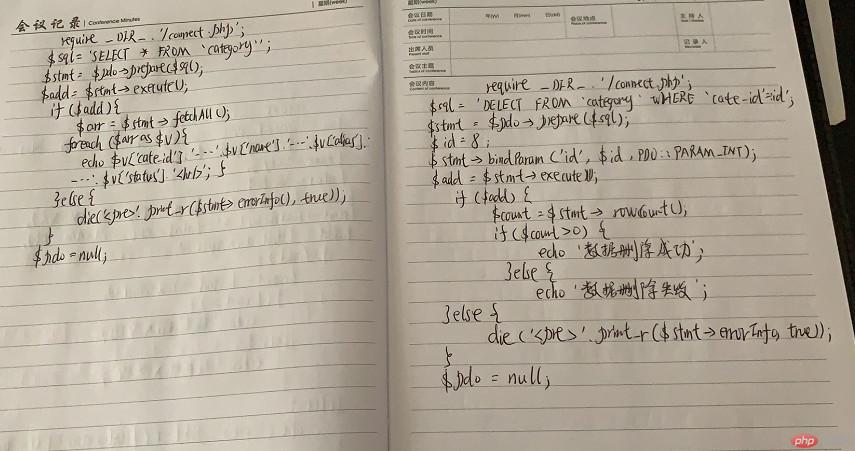 会议记录 | Conference Minutes
require _DIR_ . '/connect.php';
$sql = 'SELECT * FROM `category`';
$stmt = $pdo->prepare($sql);
$add = $stmt->execute();
if ($add) {
$arr = $stmt->fetchAll();
foreach ($arr as $v) {
echo $v['cate-id'].'---'.$v['name'].'---'.$v['alias'].
'---'.$v['status'].'<hr/>'; }
}else {
die('<pre>'.print_r($stmt->errorInfo(), true));
}
$pdo = null;
星期(week)
会议日期 年(Y) 月(mm) 日(dd) 会议地点 主持人
会议时间
出席人员 记录人
会议主题
会议内容
require _DIR_ . '/connect.php';
$sql = 'DELECT FROM `category` WHERE `cate-id`=:id';
$stmt = $pdo->prepare($sql);
$id = 8;
$stmt->bindParam('id', $id, PDO::PARAM_INT);
$add = $stmt->execute();
if ($add) {
$count = $stmt->rowCount();
if ($count>0) {
echo '数据删除成功';
}else {
echo '数据删除失败';
}else {
die('<pre>'.print_r($stmt->errorInfo, true));
}
$pdo = null;
php